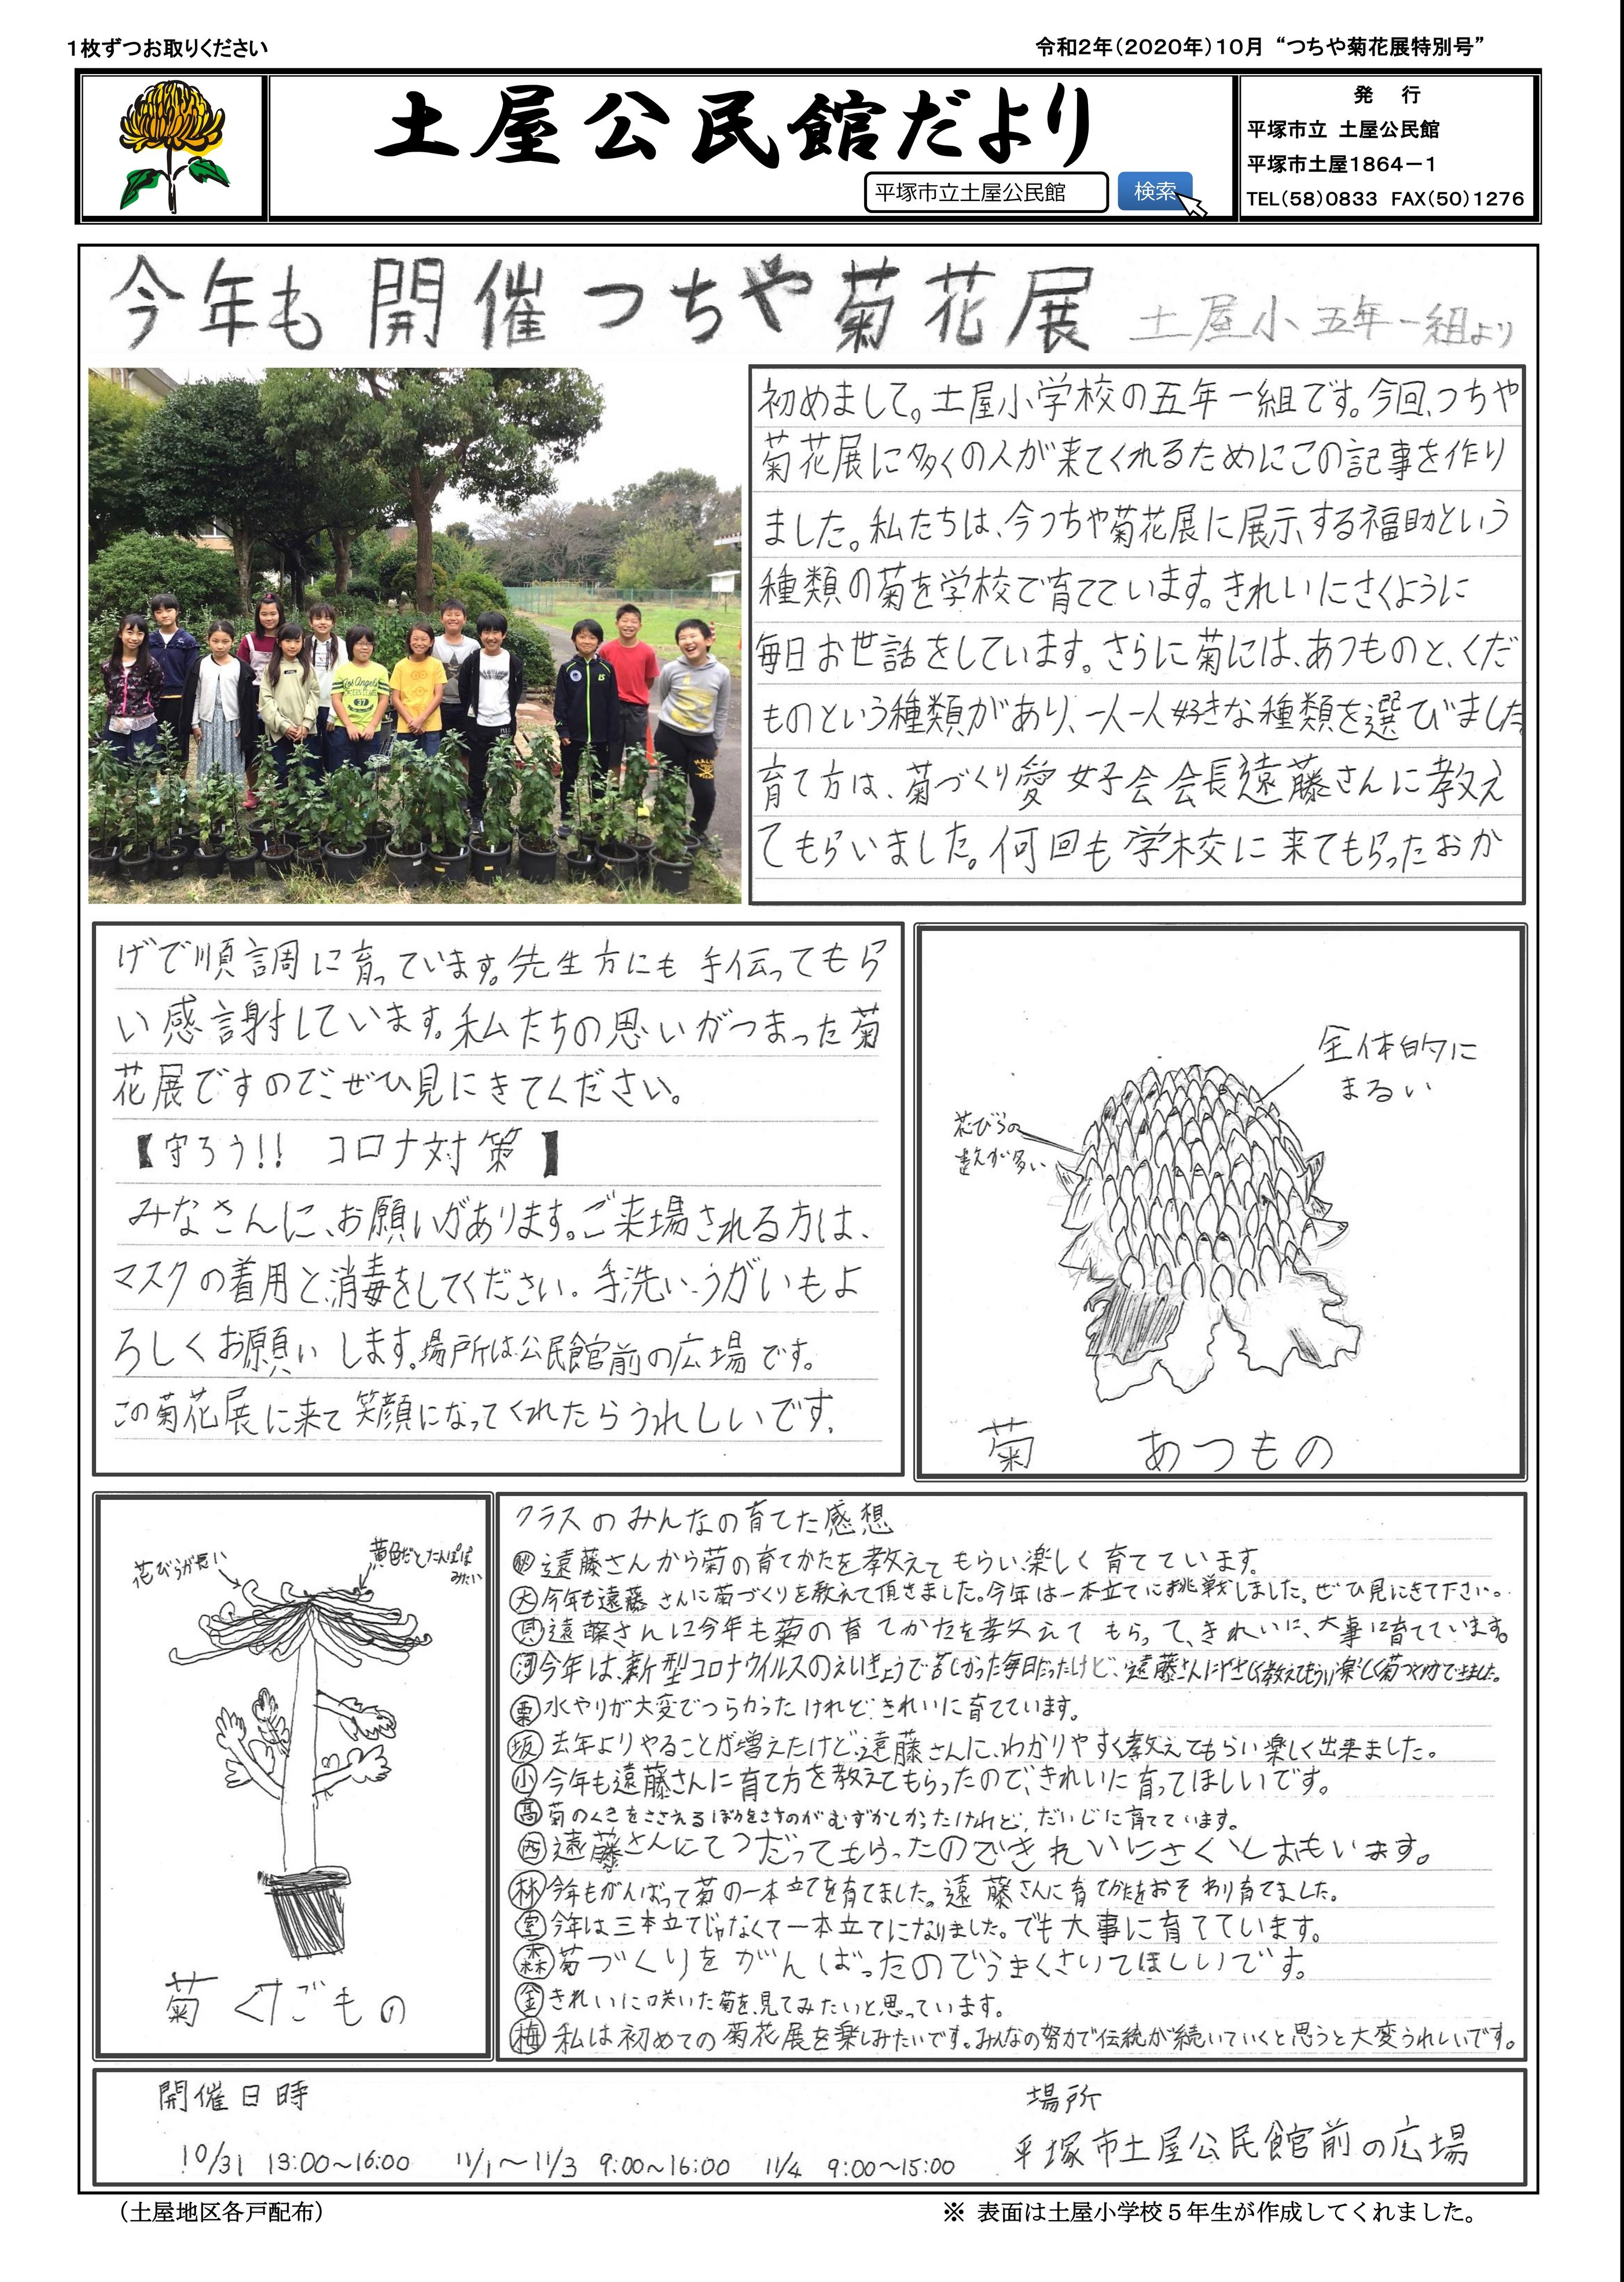 1枚ずつお取りください
令和2年（2020年）10月 “つちや菊花展特別号”
土屋公民館だより
平塚市立土屋公民館
検索
発 行
平塚市立 土屋公民館
平塚市土屋1864－1
TEL（58）0833 FAX（50）1276
今年も開催つちや菊花展 土屋小五年一組より
初めまして。土屋小学校の五年一組です。今回、つちや
菊花展に多くの人が来てくれるためにこの記事を作り
ました。私たちは、今つちや菊花展に展示する福助という
種類の菊を学校で育てています。きれいにさくように
毎日お世話をしています。さらに菊には、あつものと、くだ
ものという種類があり、一人一人好きな種類を選びました。
育て方は、菊づくり愛好会会長遠藤さんに教え
てもらいました。何回も学校に来てもらったおか
げで順調に育っています。先生方にも手伝ってもら
い感謝しています。私たちの思いがつまった菊
花展ですので、ぜひ見にきてください。
【守ろう!! コロナ対策】
みなさんに、お願いがあります。ご来場される方は、
マスクの着用と、消毒をしてください。手洗い、うがいもよ
ろしくお願いします。場所は公民館前の広場です。
この菊花展に来て笑顔になってくれたらうれしいです。
全体的に
まるい
花びらの
数が多い
菊 あつもの
花びらが長い
黄色だとたんぽぽ
みたい
菊 くだもの
クラスのみんなの育てた感想
遠藤さんから菊の育てかたを教えてもらい、楽しく育てています。
大 今年も遠藤さんに菊づくりを教えて頂きました。今年は一本立てに挑戦しました。ぜひ見にきて下さい。
遠藤さんに今年も菊の育てかたを教えてもらって、きれいに、大事に育てています。
河 今年は、新型コロナウイルスのえいきょうで苦しかった毎日だったけど、遠藤さんにやさしく教えてもらい楽しく菊づくりができました。
栗 水やりが大変でつらかったけれど、きれいに育てています。
坂 去年よりやることが増えたけど、遠藤さんに、わかりやすく教えてもらい楽しく出来ました。
小 今年も遠藤さんに育て方を教えてもらったので、きれいに育ってほしいです。
髙 菊のくきをささえるぼうをさすのがむずかしかったけれど、だいじに育てています。
西 遠藤さんにてつだってもらったのできれいにさくとおもいます。
林 今年もがんばって菊の一本立てを育てました。遠藤さんに育てかたをおそわり育てました。
室 今年は三本立てじゃなくて一本立てになりました。でも大事に育てています。
森 菊づくりをがんばったのでうまくさいてほしいです。
金 きれいに咲いた菊を見てみたいと思っています。
梅 私は初めての菊花展を楽しみたいです。みんなの努力で伝統が続いていくと思うと大変うれしいです。
開催日時
10/31 13:00～16:00 11/1～11/3 9:00～16:00 11/4 9:00～15:00
場所
平塚市土屋公民館前の広場
（土屋地区各戸配布）
※ 表面は土屋小学校5年生が作成してくれました。